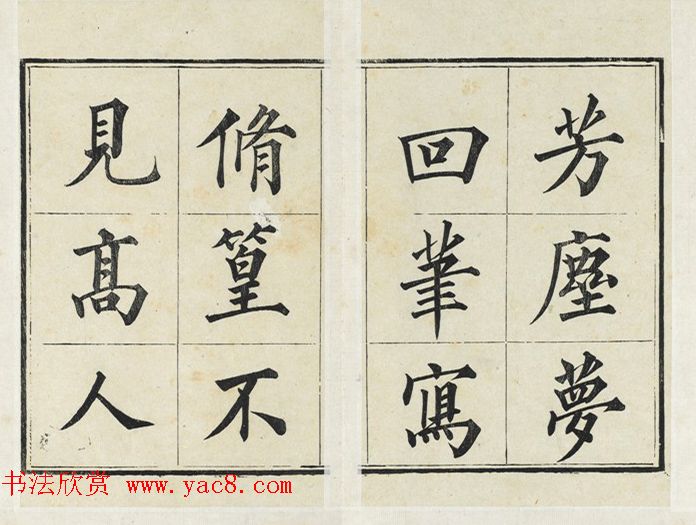 芳塵夢
回筆寫
脩篁不
見髙人
书法欣赏 www.yac8.com